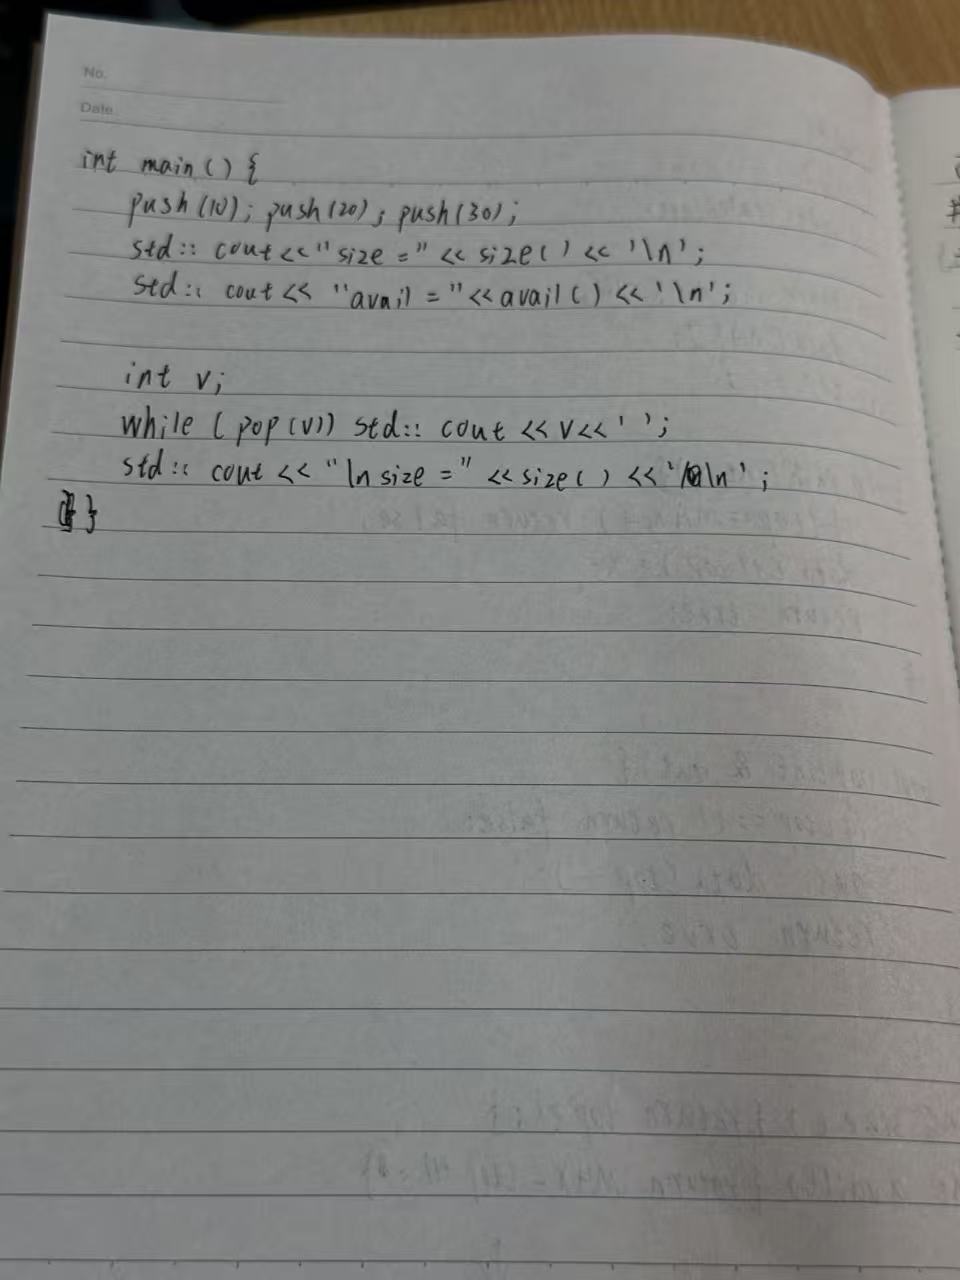 No.
Date.
int main() {
push(10); push(20); push(30);
std:: cout << "size =" << size() << '\n';
std:: cout << "avail =" << avail() << '\n';
int v;
while (pop(v)) std:: cout << v << ' ';
std:: cout << "\n size =" << size() << '\n';
}